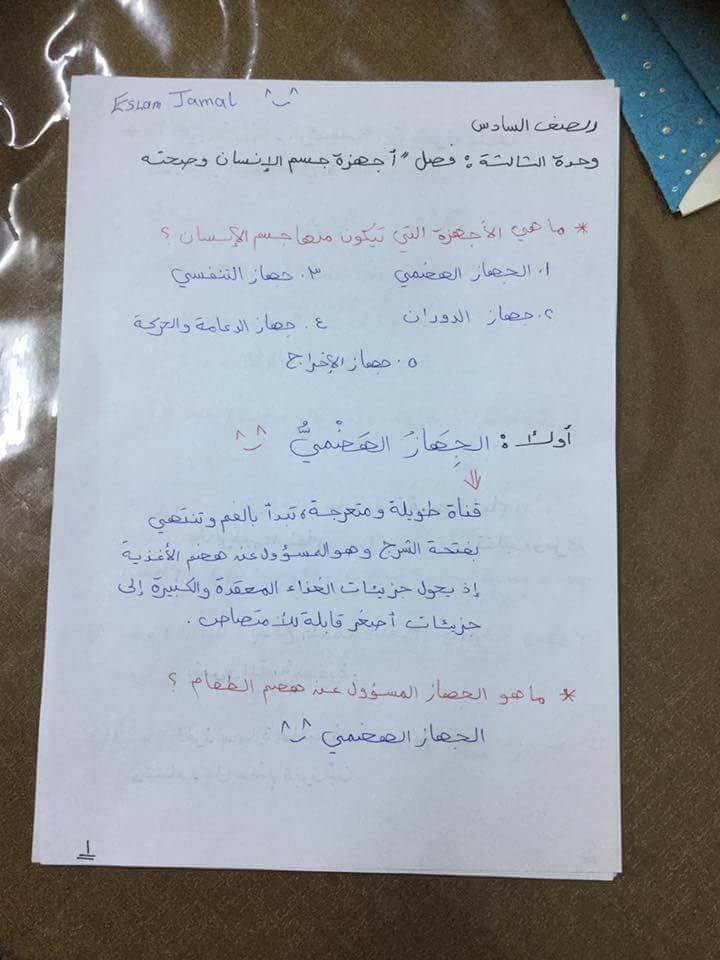 Eslam Jamal
الصف السادس
وحدة الثالثة : فصل " أجهزة جسم الإنسان وصحته
* ما هي الأجهزة التي تيكون منها جسم الإنسان ؟
١. الجهاز الهضمي ٣. جهاز التنفسي
٢. جهاز الدوران ٤. جهاز الدعامة والحركة
٥. جهاز الإخراج
أولاً : الجِهَازُ الهَضْميُّ
قناة طويلة ومتعرجة، تبدأ بالفم وتنتهي
بفتحة الشرج وهو المسؤول عن هضم الأغذية
إذ يحول جزيئات الغذاء المعقدة والكبيرة إلى
جزيئات أصغر قابلة للأمتصاص .
* ما هو الجهاز المسؤول عن هضم الطعام ؟
الجهاز الهضمي
١